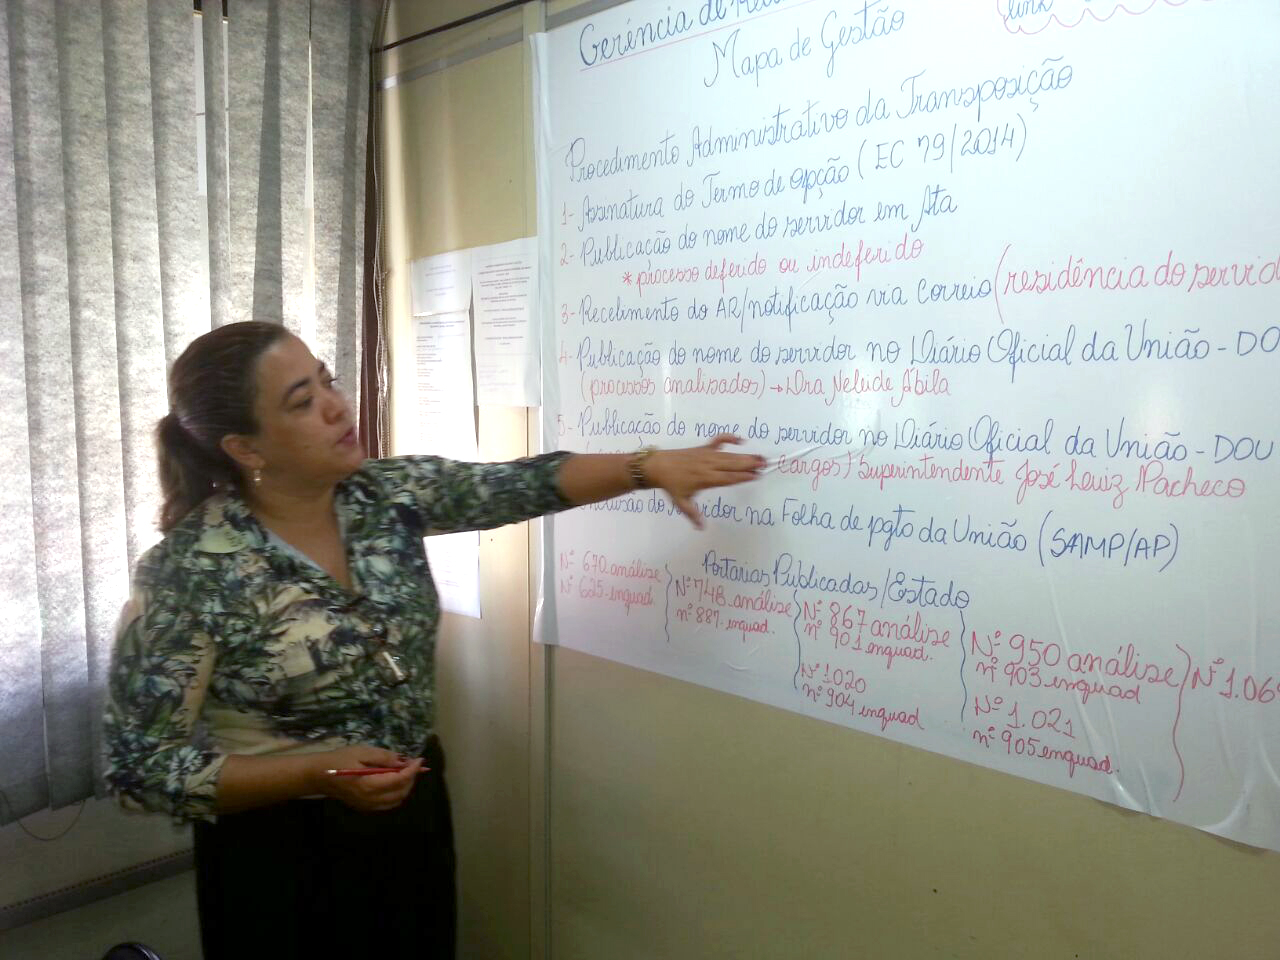 Gerência de
link
Mapa de Gestão
Procedimento Administrativo da Transposição
1- Assinatura do Termo de opção (EC 79/2014)
2- Publicação do nome do servidor em Ata
* processo deferido ou indeferido
3- Recebimento do AR/notificação via Correio (residência do servid
4- Publicação do nome do servidor no Diário Oficial da União - DO
(processos analisados) → Dra Neleide Ábila
5- Publicação do nome do servidor no Diário Oficial da União - DOU
cargos) Superintendente José Luiz Pacheco
do servidor na Folha de pgto da União (SAMP/AP)
Portarias Publicadas/Estado
Nº 670 análise
Nº 625 enquad.
Nº 748 análise
nº 887 enquad.
Nº 867 análise
nº 901 enquad.
Nº 1020
nº 904 enquad
Nº 950 análise
nº 903 enquad
Nº 1.021
nº 905 enquad.
Nº 1.06